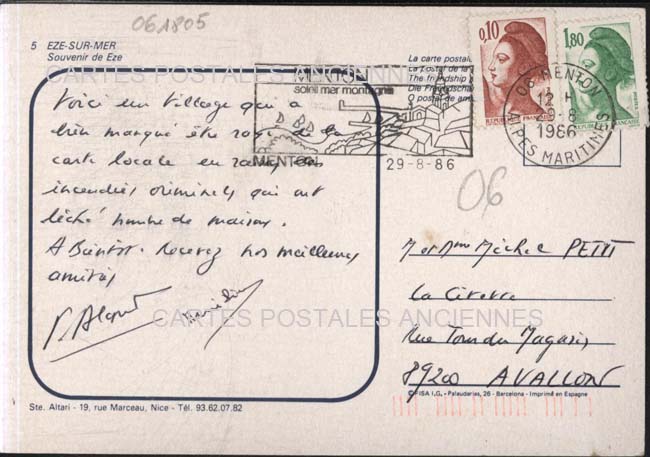 061805
5 EZE-SUR-MER
Souvenir de Eze
La carte postale
La postal de la
The friendship
Die Freundschaf
O postal de am
CARTES POSTALES ANCIENNES
0,10
RÉPUBLIQUE FRANÇAISE
1,80
MENTON
soleil mer montagne
MENTON
29-8-86
06 MENTON
12 H
29-8
1986
ALPES MARITIMES
06
Voici un village qui a
bien manqué être rayé de la
carte locale en raison des
incendies criminels qui ont
léché nombre de maisons.
A Bientôt. Recevez nos meilleures
amitiés
M et Mme Michel PETIT
La
Rue Tour du Magasin
89200 AVALLON
CARTES POSTALES ANCIENNES
Ste. Altari - 19, rue Marceau, Nice - Tél. 93.62.07.82
© FISA I.G. - Palaudarias, 26 - Barcelona - Imprimé en Espagne